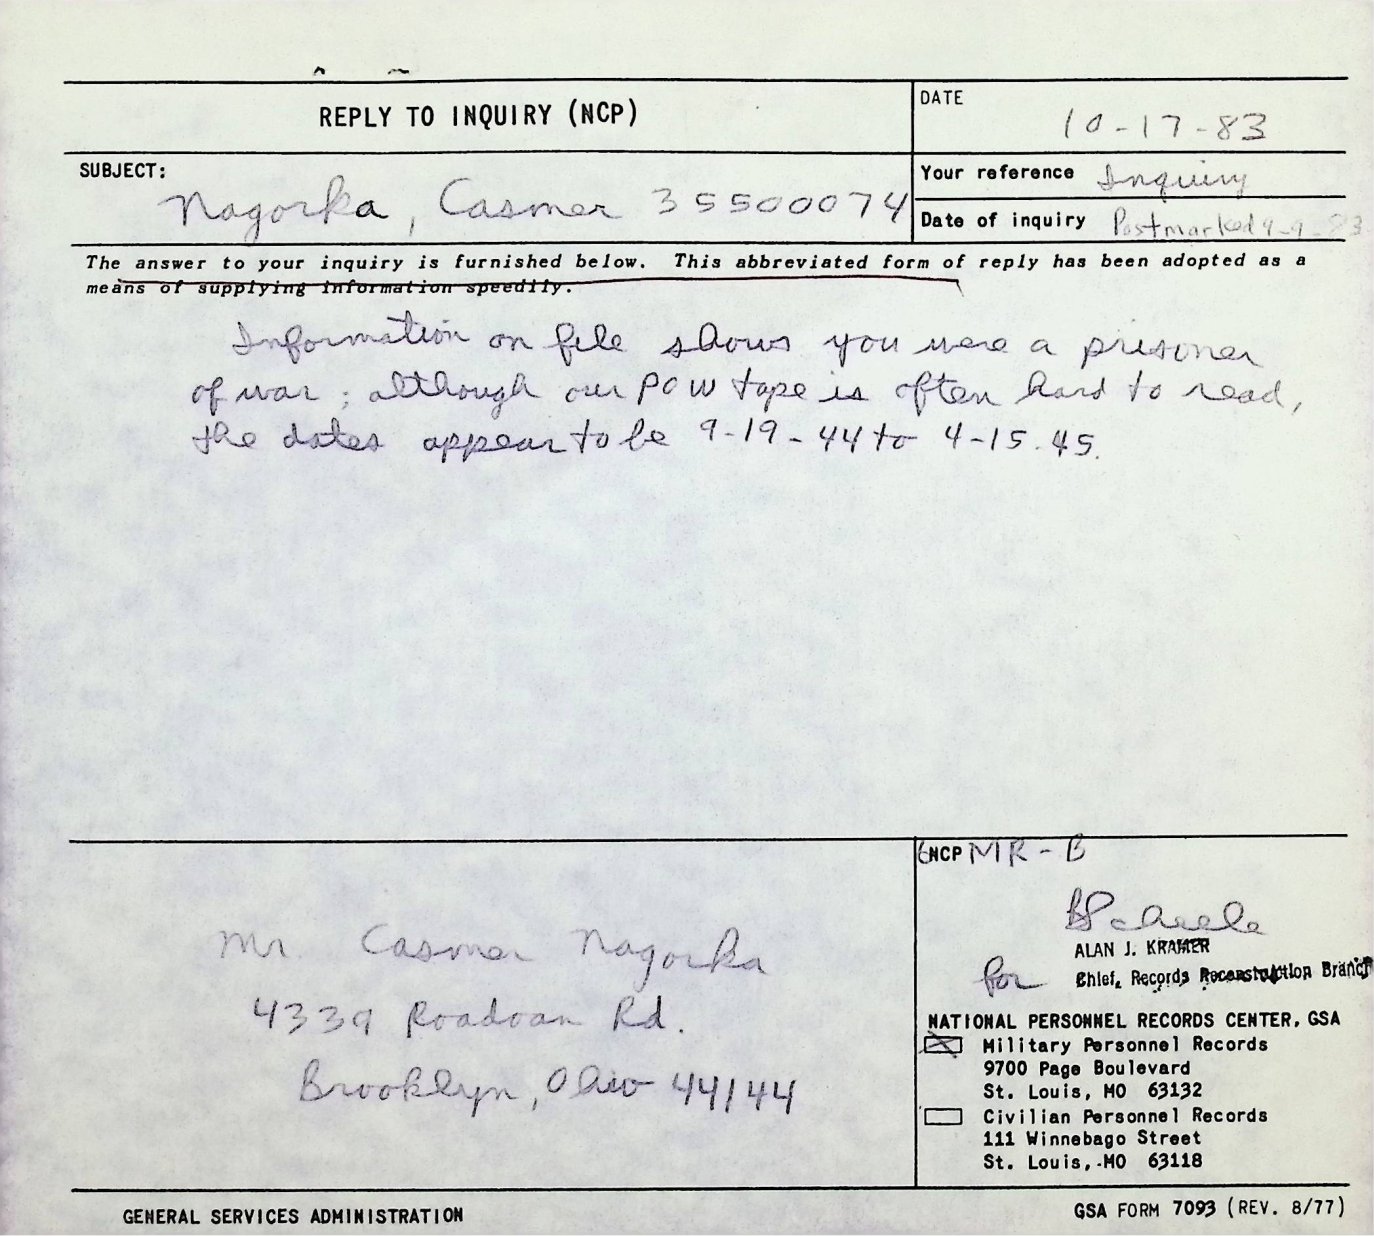 REPLY TO INQUIRY (NCP)
DATE
10-17-83
SUBJECT:
Nagorka, Casmer 35500074
Your reference Inquiry
Date of inquiry Postmarked 9-9-83
The answer to your inquiry is furnished below. This abbreviated form of reply has been adopted as a
means of supplying information speedily.
Information on file shows you were a prisoner
of war; although our POW tape is often hard to read,
the dates appear to be 9-19-44 to 4-15-45.
Mr. Casmer Nagorka
4339 Roadoan Rd.
Brooklyn, Ohio 44144
NCP MR-B
BScheele
ALAN J. KRAMER
for Chief, Records Reconstruction Branch
NATIONAL PERSONNEL RECORDS CENTER, GSA
Military Personnel Records
9700 Page Boulevard
St. Louis, MO 63132
Civilian Personnel Records
111 Winnebago Street
St. Louis, MO 63118
GENERAL SERVICES ADMINISTRATION
GSA FORM 7093 (REV. 8/77)